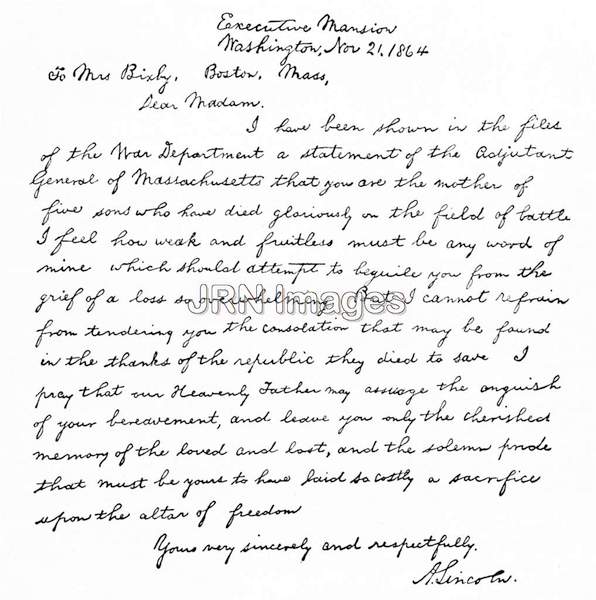 Executive Mansion
Washington, Nov 21, 1864
To Mrs Bixby, Boston, Mass,
Dear Madam.
I have been shown in the files
of the War Department a statement of the Adjutant
General of Massachusetts that you are the mother of
five sons who have died gloriously on the field of battle
I feel how weak and fruitless must be any word of
mine which should attempt to beguile you from the
grief of a loss so overwhelming But I cannot refrain
JRN Images
from tendering you the consolation that may be found
in the thanks of the republic they died to save I
pray that our Heavenly Father may assuage the anguish
of your bereavement, and leave you only the cherished
memory of the loved and lost, and the solemn pride
that must be yours to have laid so costly a sacrifice
upon the altar of freedom
Yours very sincerely and respectfully.
A. Lincoln.